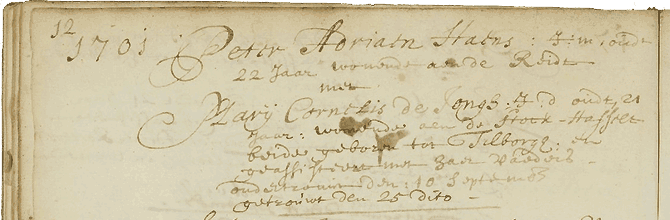 12
1701 Peter Adriaen Haens : J:m: oudt
22 Jaar wonende aen de Reidt
met
Marij Cornelis de Jongh : J : d oudt, 21
Jaar : wonende aen de Stock-Hasselt
beide geboren tot Tilborgh : en
geassisteert met haer Vaeders -
ondertrouwt den : 10 Septemb
getrouwt den 25 dito -